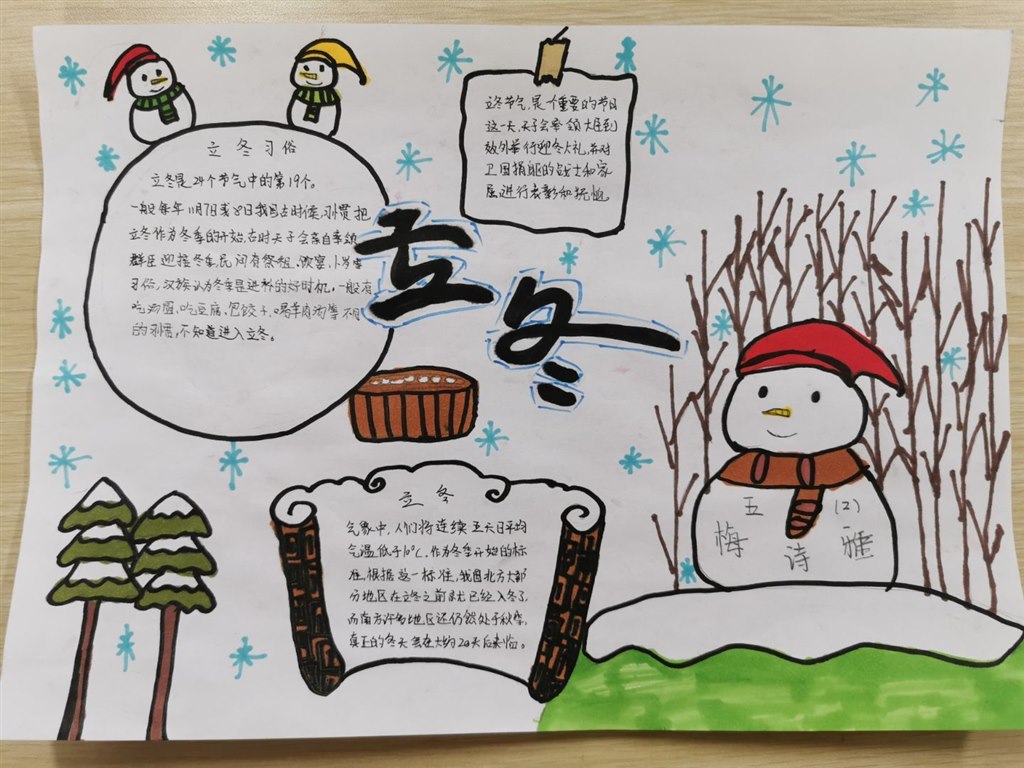 立冬习俗
立冬是24个节气中的第19个。
一般每年11月7日或8日我国古时候,习惯把
立冬作为冬季的开始,古时天子会亲自率领
群臣迎接冬年,民间有祭祖、饮宴、卜岁等
习俗,汉族认为冬季是进补的好时机,一般有
吃汤圆,吃豆腐,包饺子,喝羊肉汤等不同
的习俗,不知道进入立冬。
立冬节气,是个重要的节日
这一天,天子会率领大臣到
效外举行迎冬大礼,并对
卫国捐躯的战士和家
属进行表彰和抚恤
立冬
立冬
气象中,人们将连续五六日平均
气温低于10℃,作为冬季开始的标
准,根据这一标准,我国北方大部
分地区在立冬之前就已经入冬了
而南方许多地区还仍然处于秋季,
真正的冬天会在大约20天后来临。
五(2)
梅诗雅